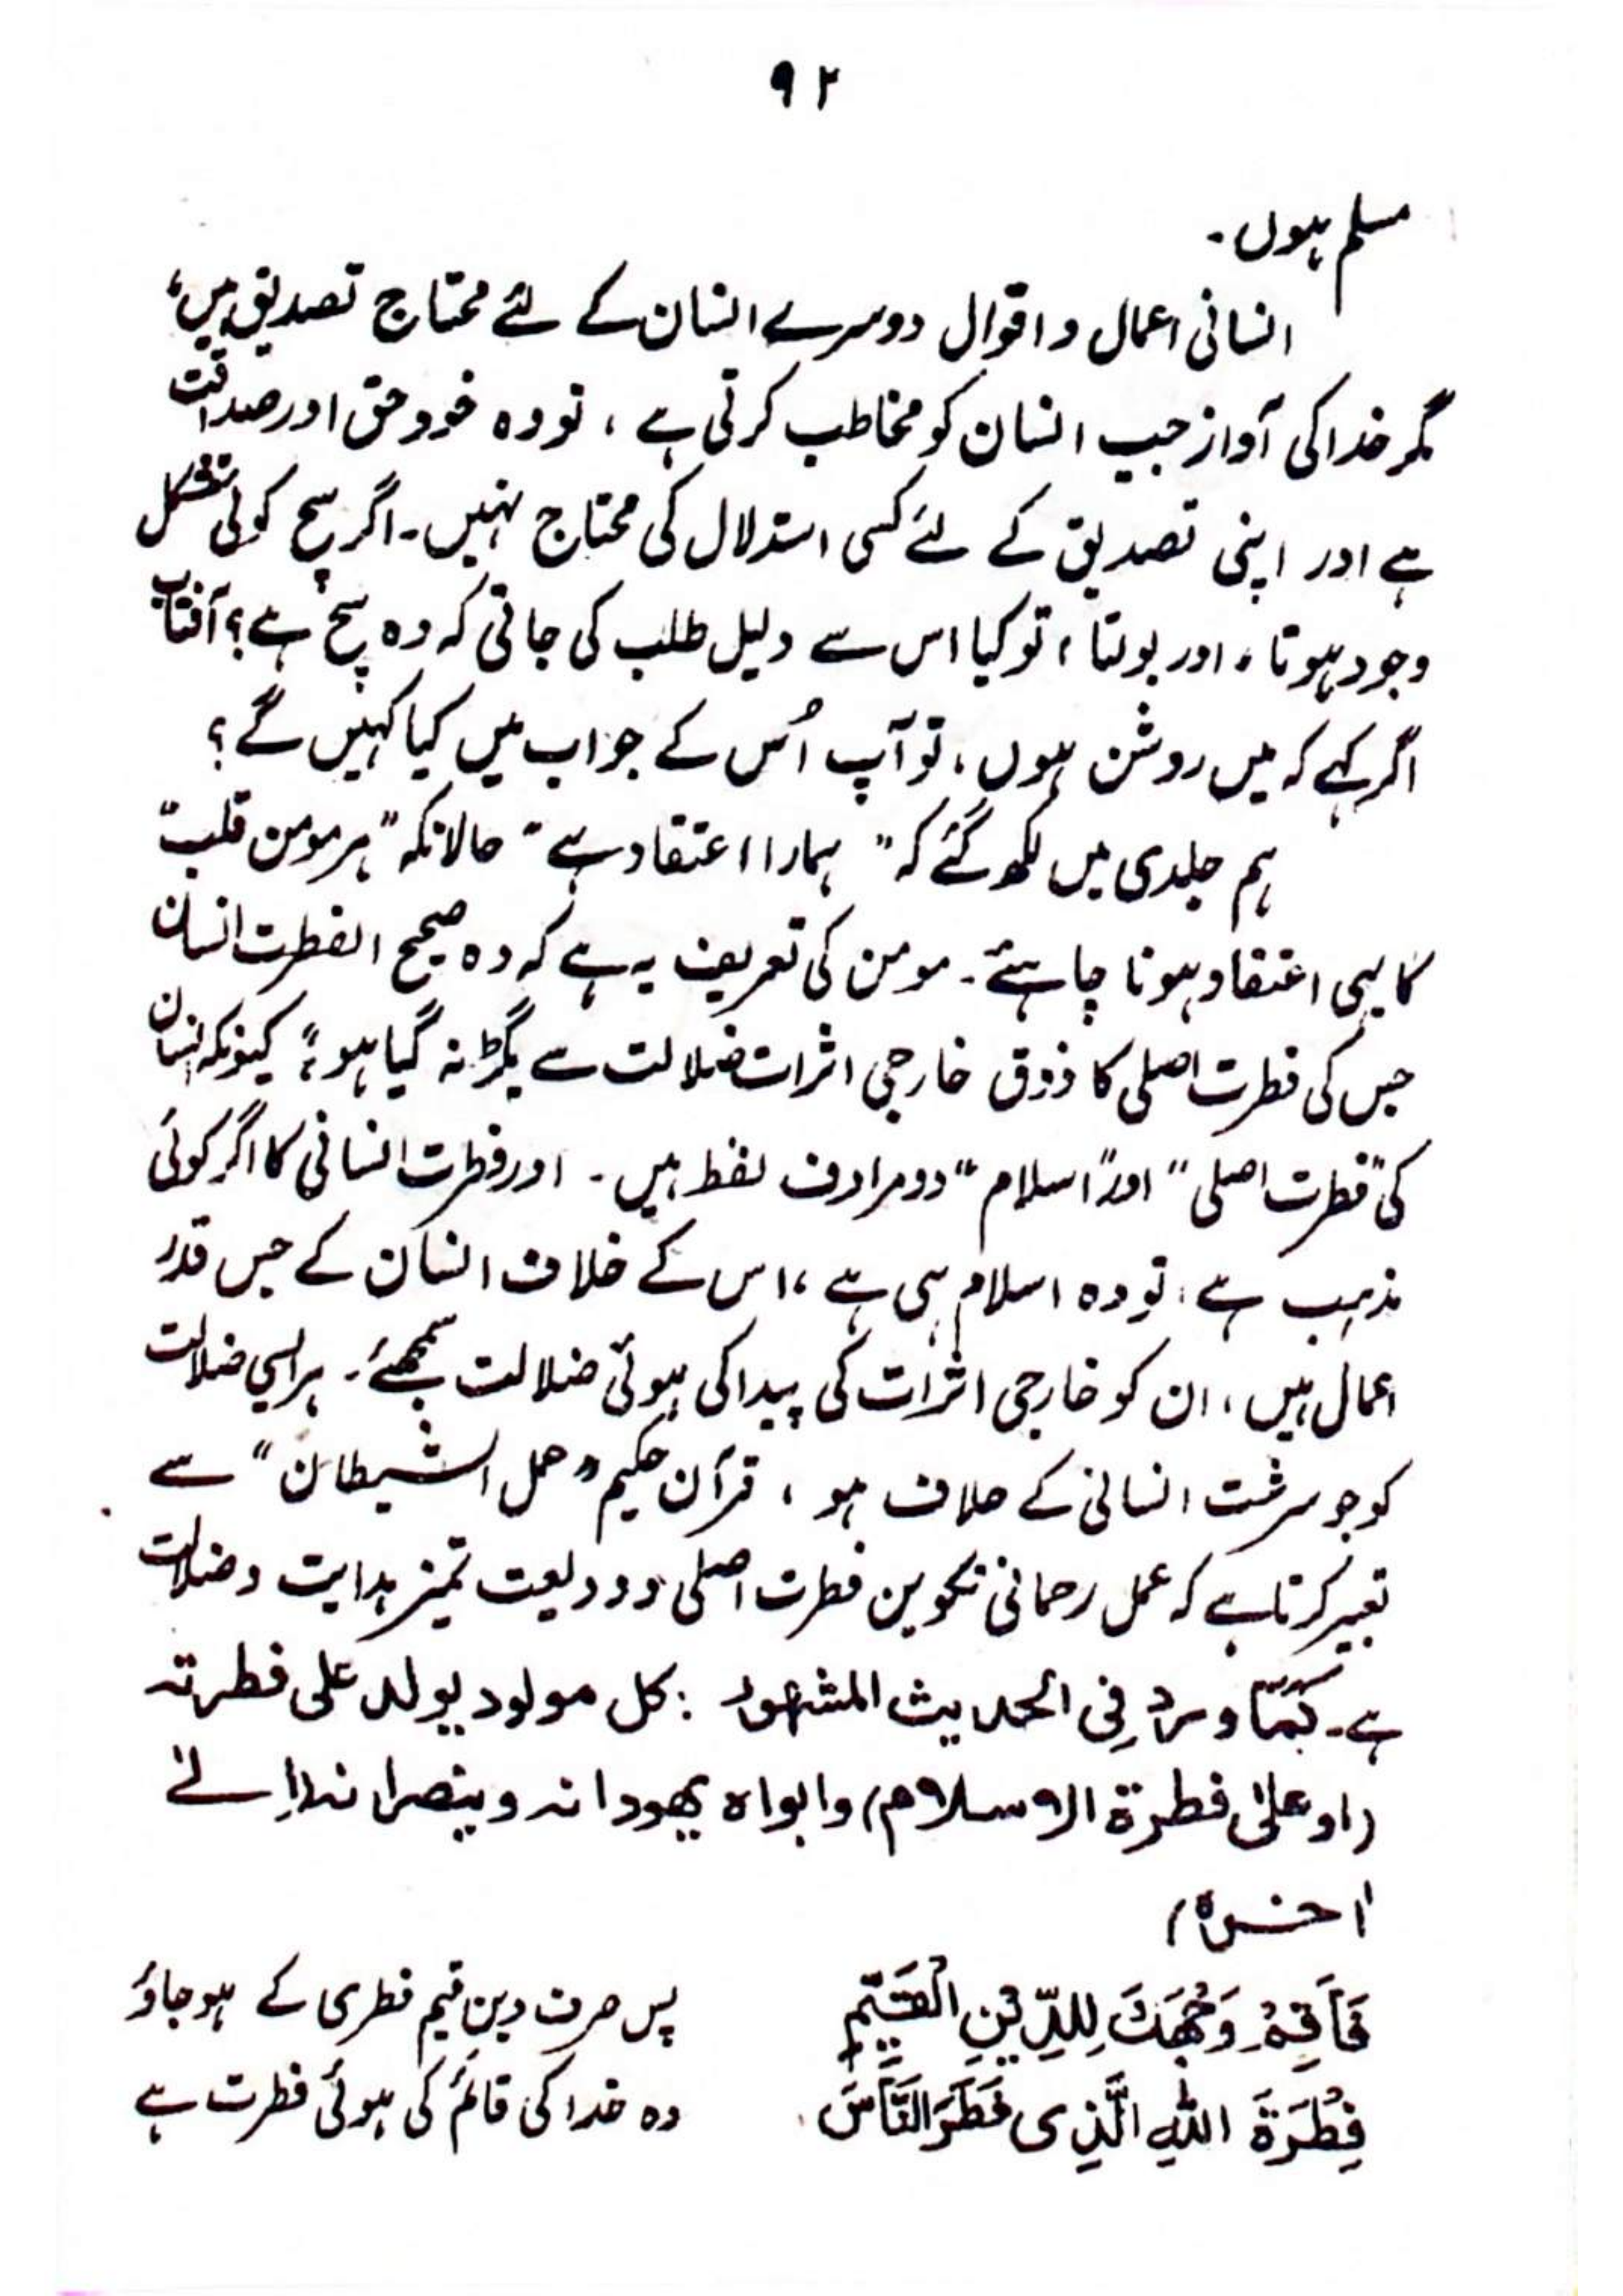 ۹۲
مسلم ہوں۔
انسانی اعمال و اقوال دوسرے انسان کے لئے محتاج تصدیق ہیں،
مگر خدا کی آواز جب انسان کو مخاطب کرتی ہے، تو وہ خود حق اور صداقت
ہے اور اپنی تصدیق کے لئے کسی استدلال کی محتاج نہیں۔ اگر سچ کوئی متشکل
وجود ہوتا، اور بولتا، تو کیا اس سے دلیل طلب کی جاتی کہ وہ سچ ہے؟ آفتاب
اگر کہے کہ میں روشن ہوں، تو آپ اُس کے جواب میں کیا کہیں گے؟
ہم جلدی میں لکھ گئے کہ "ہمارا اعتقاد ہے" حالانکہ "ہر مومن قلب"
کا یہی اعتقاد ہونا چاہئے۔ مومن کی تعریف یہ ہے کہ وہ صحیح الفطرت انسان
جس کی فطرت اصلی کا ذوق خارجی اثرات ضلالت سے بگڑ نہ گیا ہو؛ کیونکہ انسان
کی "فطرت اصلی" اور "اسلام" دو مرادف لفظ ہیں۔ اور فطرت انسانی کا اگر کوئی
مذہب ہے، تو وہ اسلام ہی ہے، اس کے خلاف انسان کے جس قدر
اعمال ہیں، ان کو خارجی اثرات کی پیدا کی ہوئی ضلالت سمجھئے۔ ہر ایسی ضلالت
کو جو سرشت انسانی کے خلاف ہو، قرآن حکیم "عمل الشیطان" سے
تعبیر کرتا ہے کہ عمل رحمانی تکوین فطرت اصلی و ودیعت تمیز ہدایت و ضلالت
ہے۔ کَمَا ورد فِی الحدیث المشهور: کل مولود یولد علی فطرته
(او علیٰ فطرة الاسلام) وابواه یهودانه وینصرانه (اِلیٰ
اٰخره)
فَاَقِمْ وَجْهَكَ لِلدِّیْنِ الْقَیِّمِ پس صرف دینِ قیم فطری کے ہو جاؤ
فِطْرَةَ اللّٰهِ الَّذِی فَطَرَ النَّاسَ وہ خدا کی قائم کی ہوئی فطرت ہے